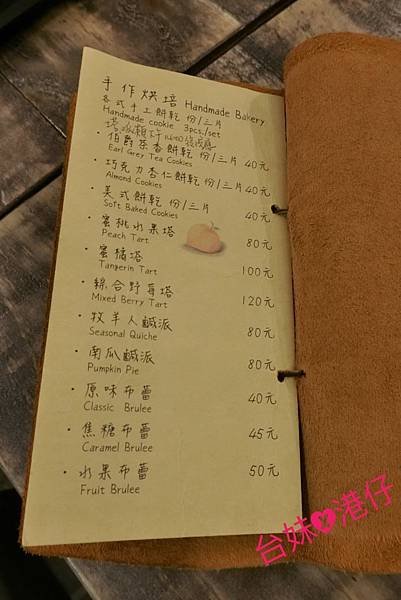 手作烘培 Handmade Bakery
各式手工餅乾 份/三片
Handmade cookie 3pcs./set
伯爵茶香餅乾 份/三片 40元
Earl Grey Tea Cookies
・巧克力杏仁餅乾 份/三片 40元
Almond Cookies
・美式餅乾 份/三片 40元
Soft Baked Cookies
・蜜桃水果塔 80元
Peach Tart
・蜜橘塔 100元
Tangerin Tart
・綜合野莓塔 120元
Mixed Berry Tart
・牧羊人鹹派 80元
Seasonal Quiche
・南瓜鹹派 80元
Pumpkin Pie
・原味布蕾 40元
Classic Brulee
・焦糖布蕾 45元
Caramel Brulee
・水果布蕾 50元
Fruit Brulee
台妹♥港仔